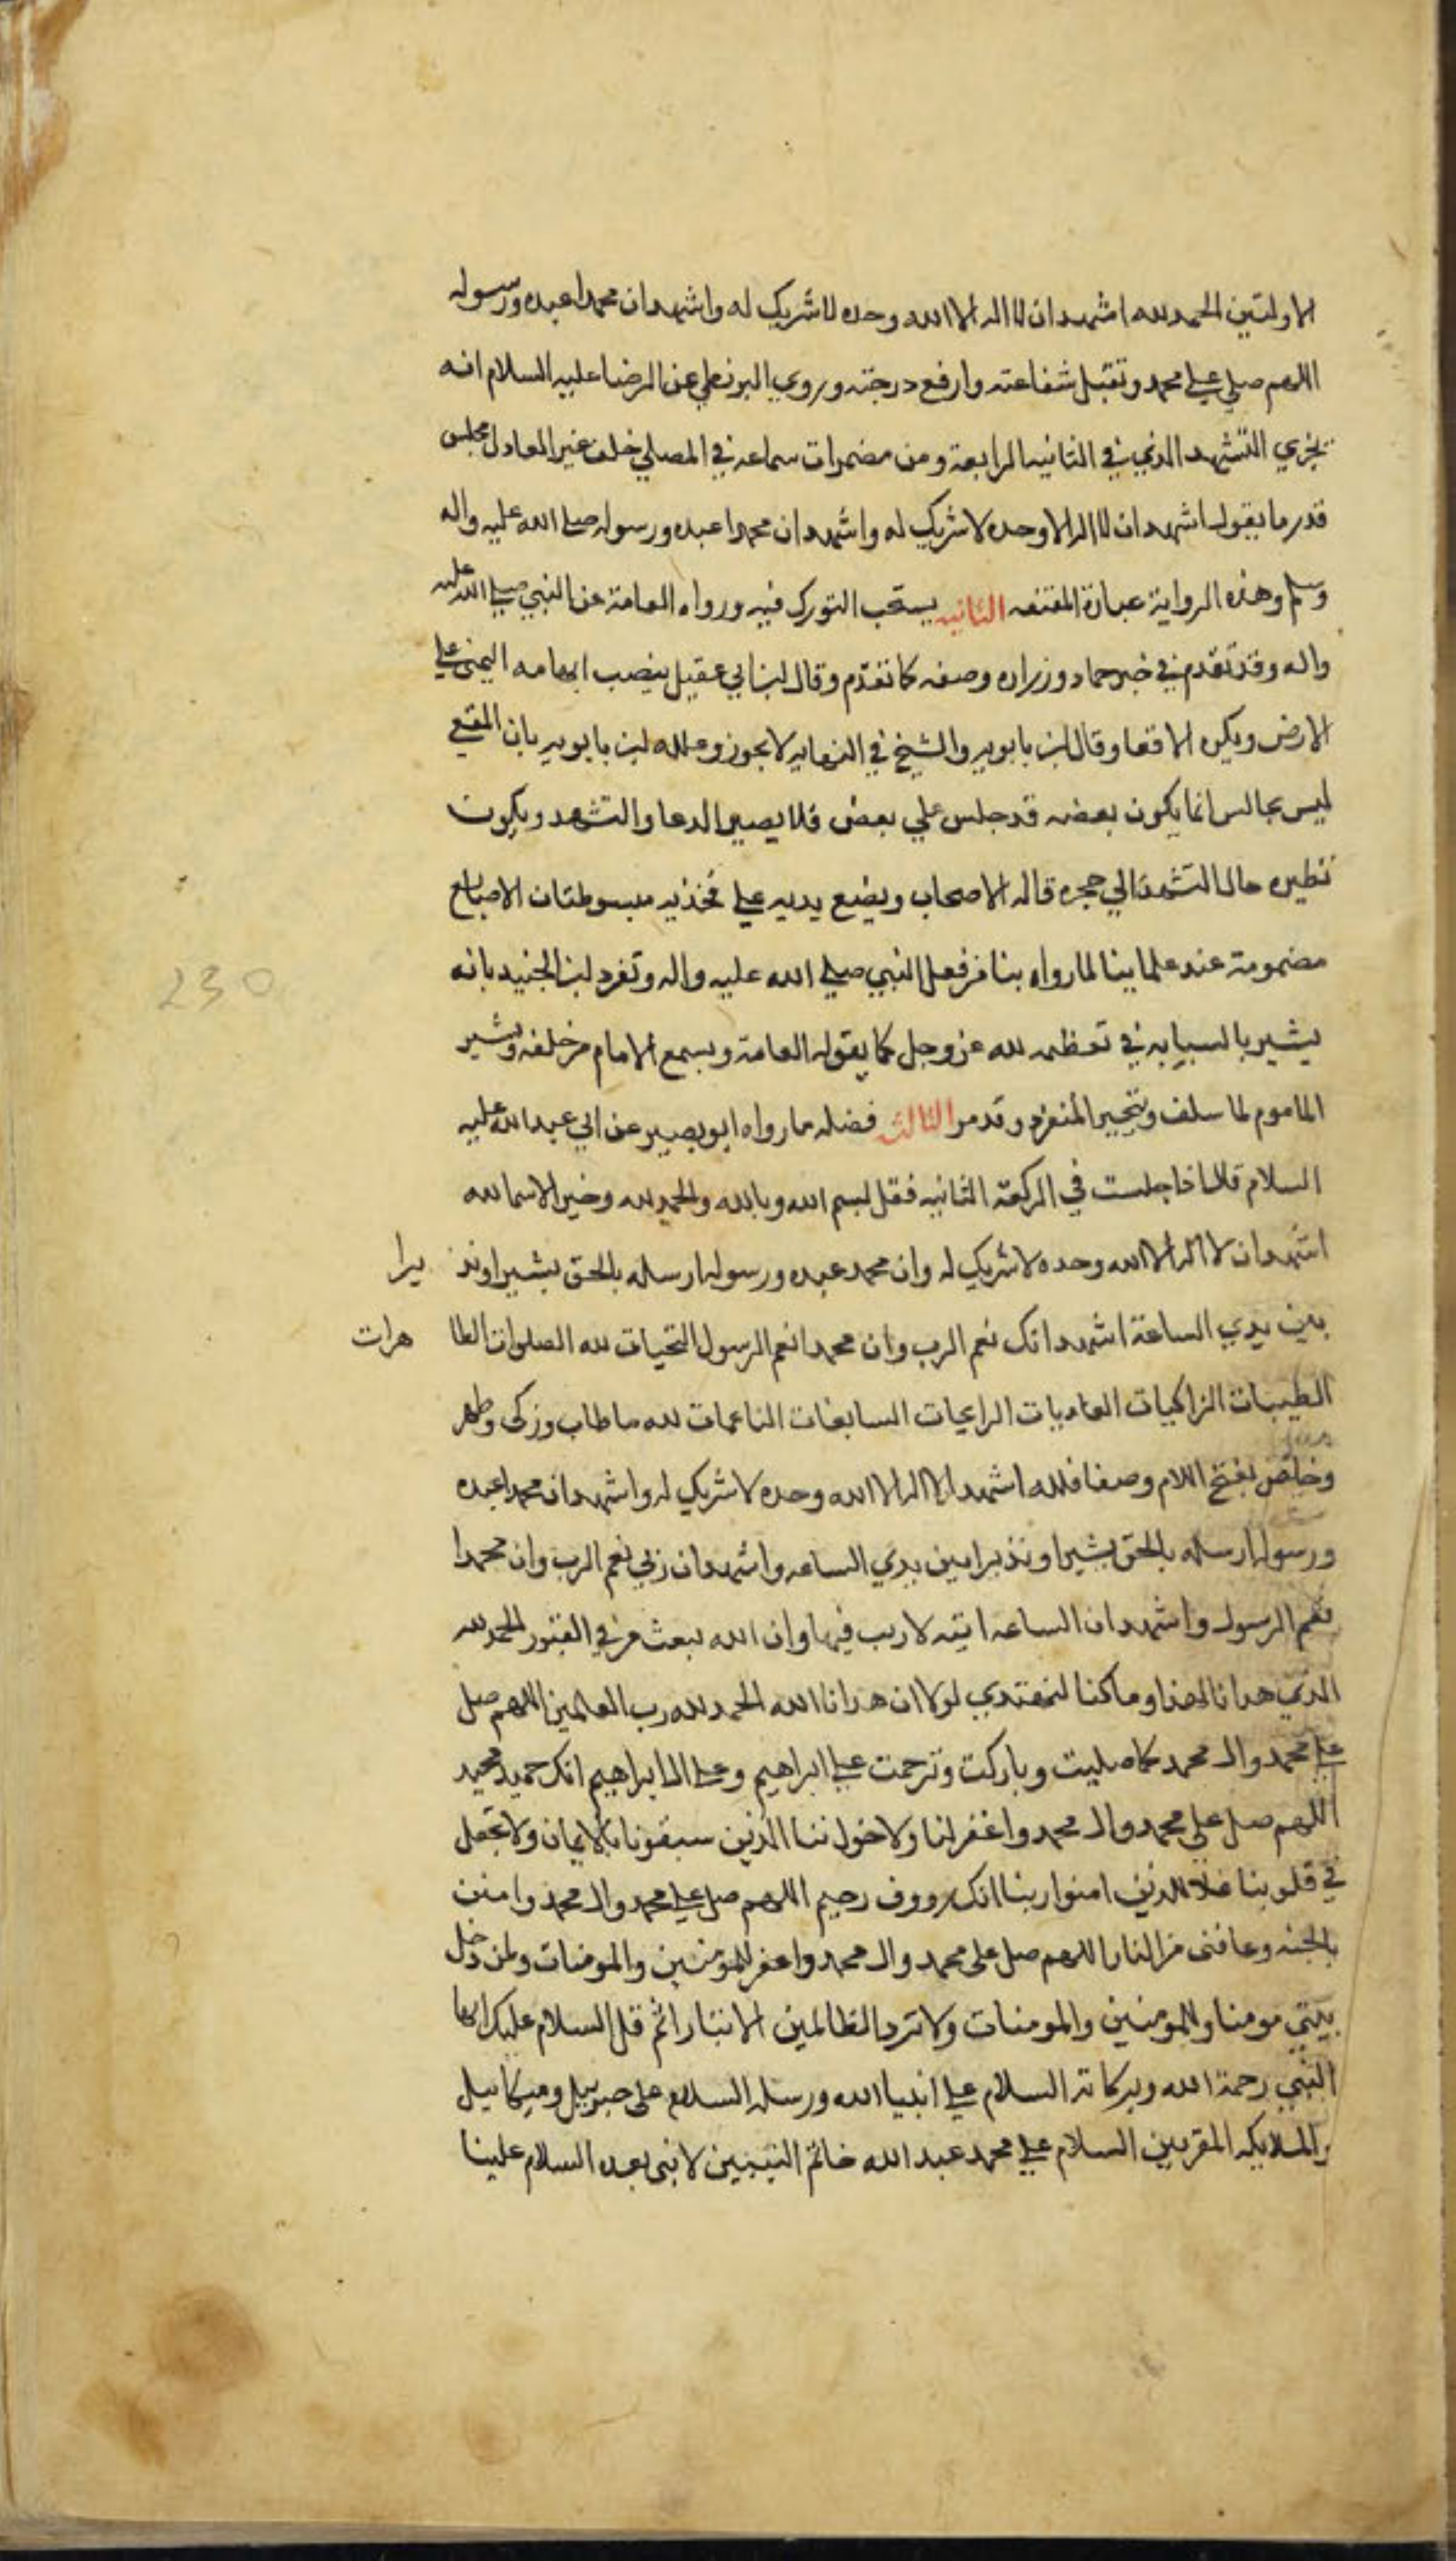 الاولتين الحمد لله اشهد ان لا اله الا الله وحده لا شريك له واشهد ان محمدا عبده ورسوله
اللهم صلي علي محمد وتقبل شفاعته وارفع درجته وروي البزنطي عن الرضا عليه السلام انه
يجزي التشهد الذي في الثانيه الرابعة ومن مضمرات سماعه في المصلي خلف غير العادل يجلس
قدر ما يقول اشهد ان لا اله الا وحده لا شريك له واشهد ان محمدا عبده ورسوله صلي الله عليه واله
وسلم وهذه الرواية عبارة المقنعه الثانيه يستحب التورك فيه ورواه العامة عن النبي صلي الله عليه
واله وقد تقدم في خبر حماد وزراره وصفه كما تقدم وقال ابن ابي عقيل ينصب ابهامه اليمنى علي
الارض ويكره الاقعا وقال ابن بابويه والشيخ في النهايه لا يجوز وعلله ابن بابويه بان المقعي
ليس بجالس انما يكون بعضه قد جلس علي بعض فلا يصير الدعا والتشهد ويكون
نظره حال التشهد الي حجره قاله الاصحاب ويضع يديه علي فخذيه مبسوطتان الاصابع
مضمومة عند علماينا لما رواه بنا من فعل النبي صلي الله عليه واله وتفرد ابن الجنيد بانه
يشير بالسبابه في تعظيمه لله عز وجل كما يقوله العامة ويسمع الامام من خلفه ويشير
الماموم لما سلف ويتخير المنفرد وقد مر الثالث فضله ما رواه ابو بصير عن ابي عبد الله عليه
السلام قال اذا جلست في الركعة الثانيه فقل بسم الله وبالله والحمد لله وخير الاسما لله
اشهد ان لا اله الا الله وحده لا شريك له وان محمد عبده ورسوله ارسله بالحق بشيرا ونذ يرا
بين يدي الساعة اشهد انك نعم الرب وان محمدا نعم الرسول التحيات لله الصلوات الطا هرات
الطيبات الزاكيات الغاديات الرايحات السابغات الناعمات لله ما طاب وزكى وطهر
وخلص بفتح اللام وصفا فلله اشهد ان لا اله الا الله وحده لا شريك له واشهد ان محمدا عبده
ورسوله ارسله بالحق بشيرا ونذيرا بين يدي الساعه واشهد ان ربي نعم الرب وان محمدا
نعم الرسول واشهد ان الساعه اتيه لا ريب فيها وان الله يبعث من في القبور الحمد لله
الذي هدانا لهذا وما كنا لنهتدي لولا ان هدانا الله الحمد لله رب العالمين اللهم صل
علي محمد وال محمد كما صليت وباركت وترحمت علي ابراهيم وعلي ال ابراهيم انك حميد مجيد
اللهم صل علي محمد وال محمد واغفر لنا ولاخواننا الذين سبقونا بالايمان ولا تجعل
في قلوبنا غلا للذين امنوا ربنا انك رووف رحيم اللهم صل علي محمد وال محمد وامنن
بالجنه وعافنى من النار اللهم صل على محمد وال محمد واغفر للمومنين والمومنات ولمن دخل
بيتي مومنا وللمومنين والمومنات ولا تزد الظالمين الا تبارا ثم قل السلام عليك ايها
النبي رحمة الله وبركاته السلام علي انبيا الله ورسله السلام على جبرييل وميكاييل
والملايكه المقربين السلام علي محمد عبد الله خاتم النبيين لا نبى بعده السلام علينا
230